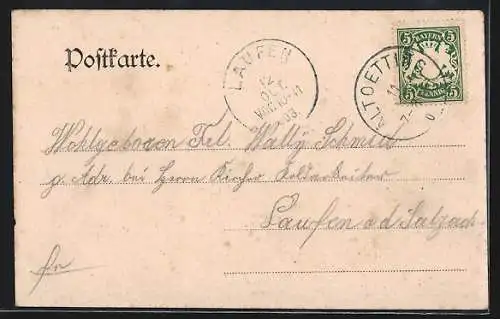 Postkarte.
LAUFEN
12
OKT.
VOR.10-11
03.
ALTOETTING
5 BAYERN 5
5 PFENNIG 5
Wohlgeboren Frl. Wally Schmid
g. Adr. bei Herrn
Laufen a d Salzach